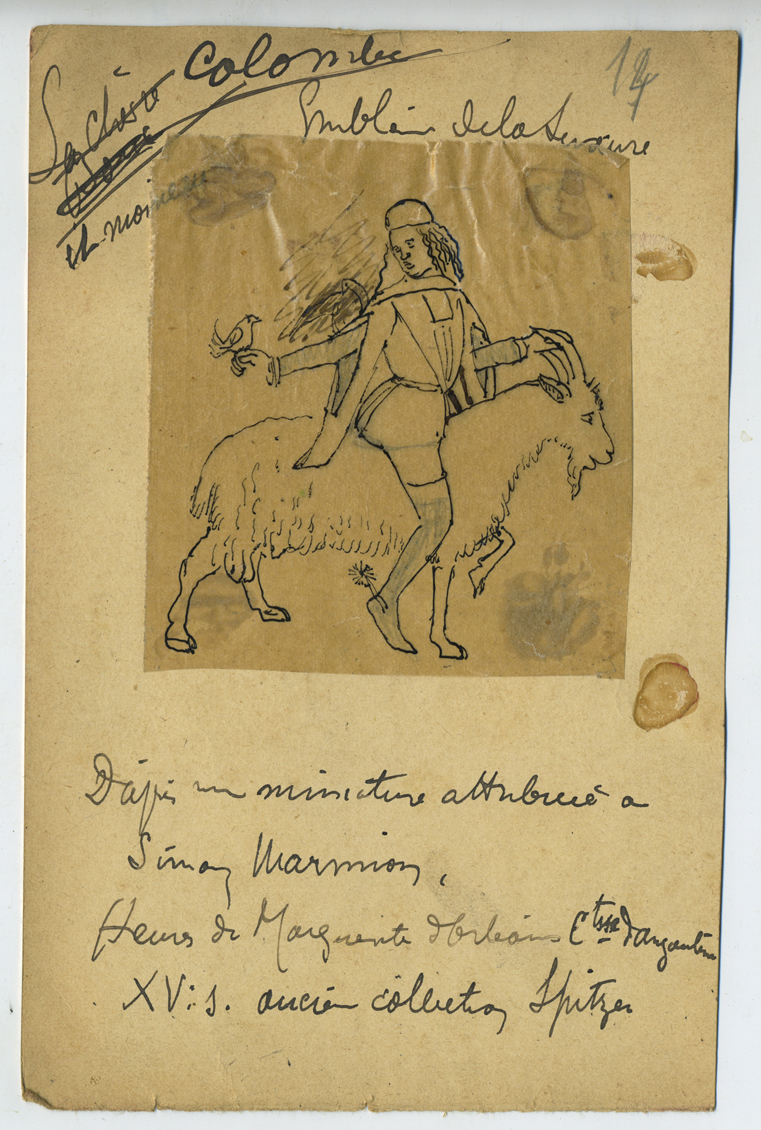 La Colombe
14
Emblême de la Luxure
et moineau
D'après une miniature attribuée a
Simon Marmion,
Heures de Marguerite d'Orléans Ctsse d'angoulême
XVe s. ancien collection Spitzer